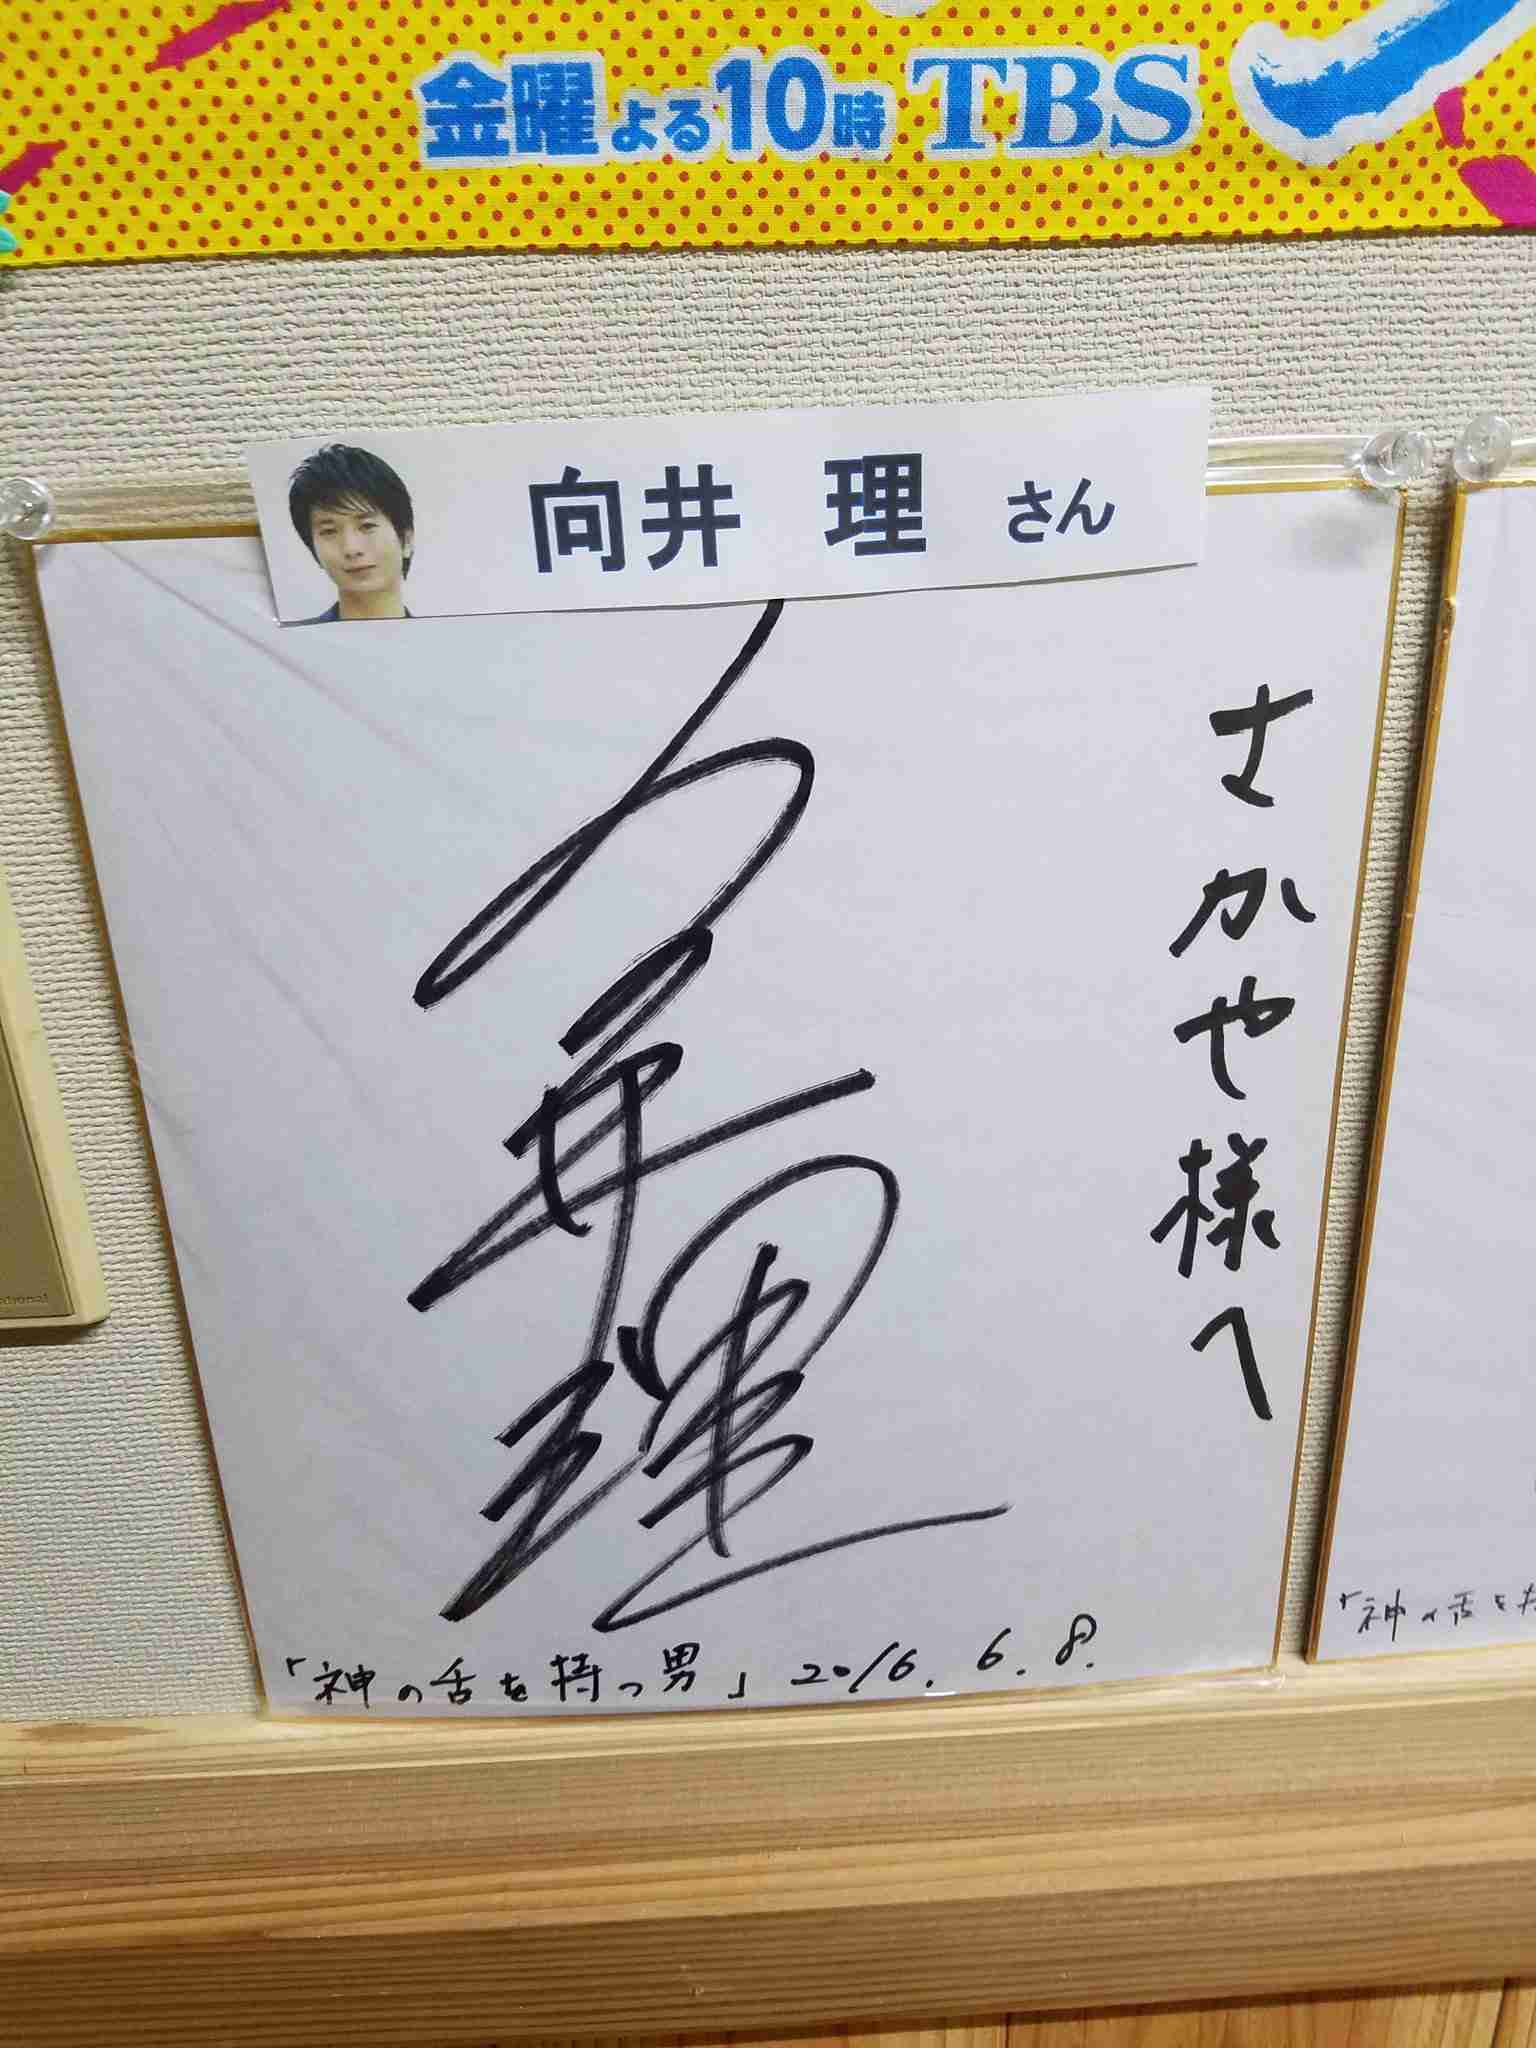 金曜よる10時 TBS
向井 理 さん
さかや様へ
向井理
「神の舌を持つ男」 2016. 6. 8.
「神の舌を